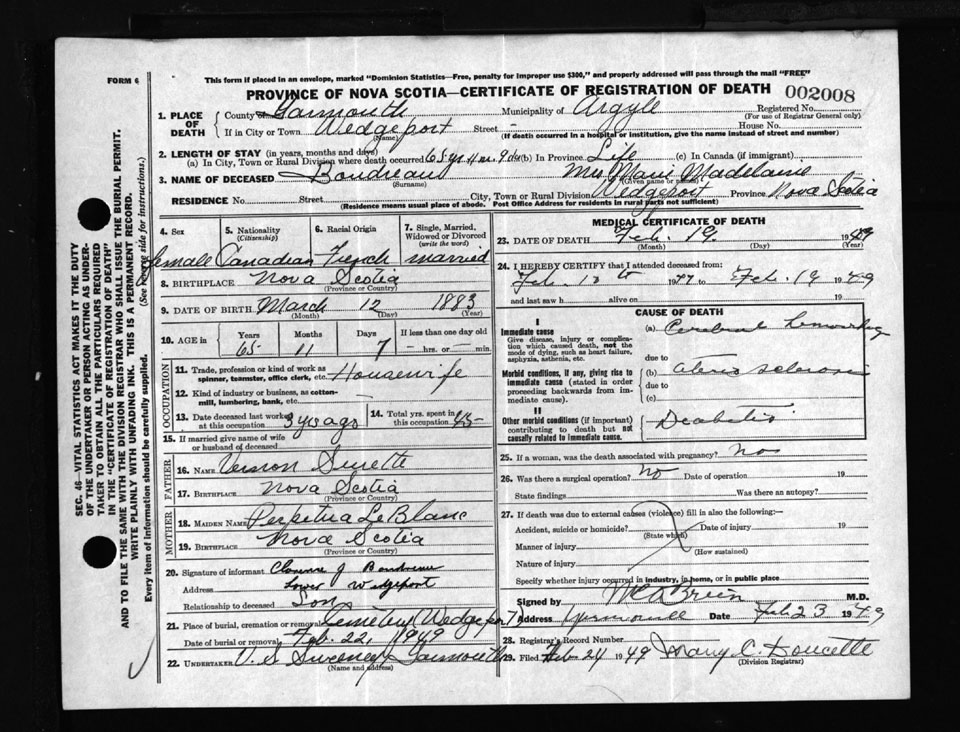 FORM 6
This form if placed in an envelope, marked "Dominion Statistics—Free, penalty for improper use $300," and properly addressed will pass through the mail "FREE"
PROVINCE OF NOVA SCOTIA—CERTIFICATE OF REGISTRATION OF DEATH 002008
1. PLACE OF DEATH County of Yarmouth Municipality of Argyle Registered No.
(For use of Registrar General only)
If in City or Town Wedgeport Street — House No.
(Name) (If death occurred in a hospital or institution, give the name instead of street and number)
2. LENGTH OF STAY (in years, months and days)
(a) In City, Town or Rural Division where death occurred 65 yr 11 m. 9 d. (b) In Province Life (c) In Canada (if immigrant)
3. NAME OF DECEASED Boudreau Mrs Marie Madelaine
(Surname) (Given name or names)
RESIDENCE No. Street City, Town or Rural Division Wedgeport Province Nova Scotia
(Residence means usual place of abode. Post Office Address for residents in rural parts not sufficient)
4. Sex 5. Nationality (Citizenship) 6. Racial Origin 7. Single, Married, Widowed or Divorced (write the word)
female Canadian French married
8. BIRTHPLACE Nova Scotia
(Province or Country)
9. DATE OF BIRTH March 12 1883
(Month) (Day) (Year)
10. AGE in Years Months Days If less than one day old
65 11 7 — hrs. or — min.
OCCUPATION
11. Trade, profession or kind of work as spinner, teamster, office clerk, etc. Housewife
12. Kind of industry or business, as cotton-mill, lumbering, bank, etc.
13. Date deceased last worked at this occupation 3 yrs ago 14. Total yrs. spent in this occupation 45
15. If married give name of wife or husband of deceased
FATHER
16. NAME Vernon Surette
17. BIRTHPLACE Nova Scotia
(Province or Country)
MOTHER
18. MAIDEN NAME Perpetua LeBlanc
19. BIRTHPLACE Nova Scotia
(Province or Country)
20. Signature of informant Clarence J Boudreau
Address Lower Wedgeport
Relationship to deceased Son
21. Place of burial, cremation or removal Cemetery (Wedgeport)
Date of burial or removal Feb. 22, 1949
22. UNDERTAKER V. S Sweeney Yarmouth
(Name and address)
MEDICAL CERTIFICATE OF DEATH
23. DATE OF DEATH Feb. 19. 1949
(Month) (Day) (Year)
24. I HEREBY CERTIFY that I attended deceased from:
Feb. 19 to Feb. 19 1949
and last saw h alive on 19
CAUSE OF DEATH
I
Immediate cause (a) Cerebral Hemorrhage
Give disease, injury or complication which caused death, not the mode of dying, such as heart failure, asphyxia, asthenia, etc.
due to
Morbid conditions, if any, giving rise to immediate cause (stated in order proceeding backwards from immediate cause).
(b) Aterio sclerosis
due to
(c)
II
Other morbid conditions (if important) contributing to death but not causally related to immediate cause.
Deabetis
25. If a woman, was the death associated with pregnancy? No
26. Was there a surgical operation? No Date of operation 19
State findings Was there an autopsy?
27. If death was due to external causes (violence) fill in also the following:—
Accident, suicide or homicide? Date of injury 19
(State which)
Manner of injury
(How sustained)
Nature of injury
Specify whether injury occurred in industry, in home, or in public place
Signed by M.D.
Address Yarmouth Date Feb 23 1949
28. Registrar's Record Number
29. Filed Feb 24 1949 Mary C. Doucette
(Division Registrar)
SEC. 46—VITAL STATISTICS ACT MAKES IT THE DUTY
OF THE UNDERTAKER OR PERSON ACTING AS UNDER-
TAKER TO OBTAIN ALL THE PARTICULARS REQUIRED
IN THE "CERTIFICATE OF REGISTRATION OF DEATH"
AND TO FILE THE SAME WITH THE DIVISION REGISTRAR WHO SHALL ISSUE THE BURIAL PERMIT.
WRITE PLAINLY WITH UNFADING INK. THIS IS A PERMANENT RECORD.
Every item of Information should be carefully supplied. (See reverse side for instructions.)